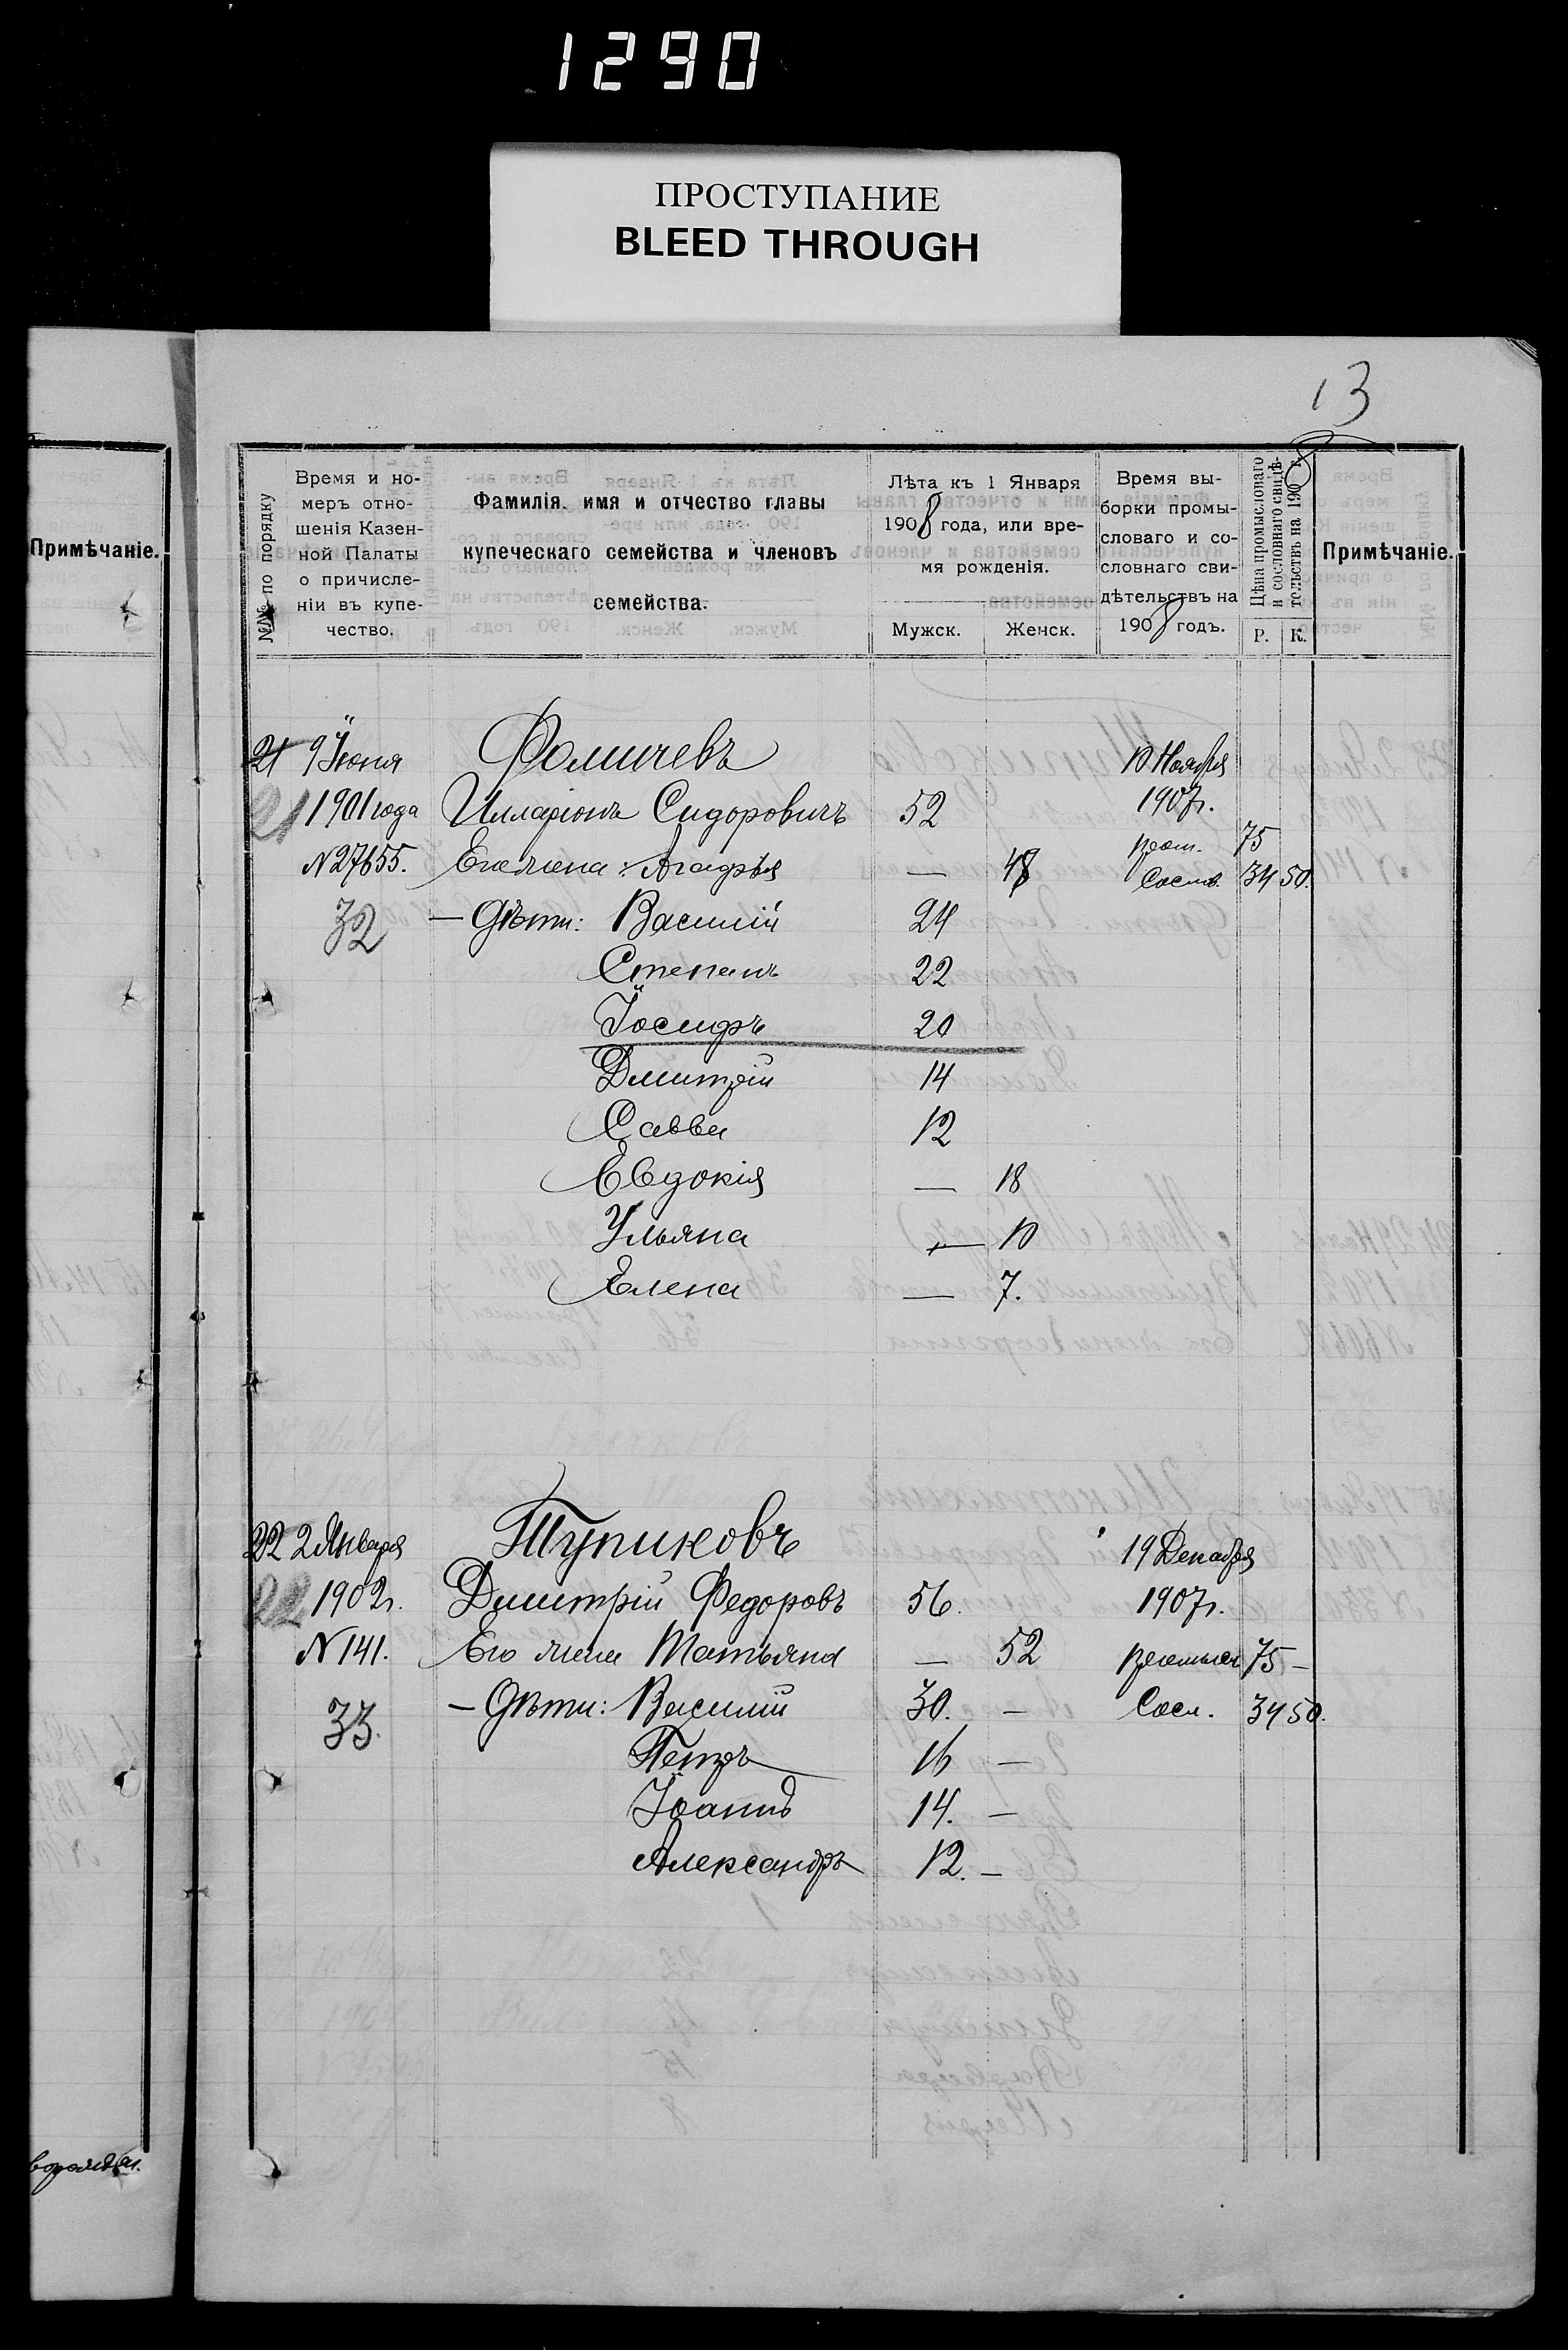 1290
ПРОСТУПАНИЕ
BLEED THROUGH
13
Примѣчаніе.
№№ по порядку
Время и но-
меръ отно-
шенія Казен-
ной Палаты
о причисле-
ніи въ купе-
чество.
Фамилія, имя и отчество главы
купеческаго семейства и членовъ
семейства.
Лѣта къ 1 Января
1908 года, или вре-
мя рожденія.
Мужск. Женск.
Время вы-
борки промы-
словаго и со-
словнаго сви-
дѣтельствъ на
1908 годъ.
Цѣна промысловаго
и сословнаго свидѣ-
тельствъ на 1908 г.
Р. К.
Примѣчаніе.
21 9 Іюня Фомичевъ 10 Ноября
21 1901 года Илларіонъ Сидоровичъ 52 1907 г.
N 27655. Его жена: Агафья — 48 пром. 75
Ослов. 34 50.
32 — Дѣти: Василій 24
Степанъ 22
Іосифъ 20
Дмитрій 14
Савва 12
Евдокія — 18
Ульяна — 10
Елена — 7.
22 2 Января Тупиковъ 19 Декабря
22 1902 г. Дмитрій Федоровъ 56. 1907 г.
N 141. Его жена Татьяна — 52 75 —
33. — Дѣти: Василій 30. — Сосл. 34 50.
Петръ 16 —
Іоаннъ 14. —
Александръ 12. —